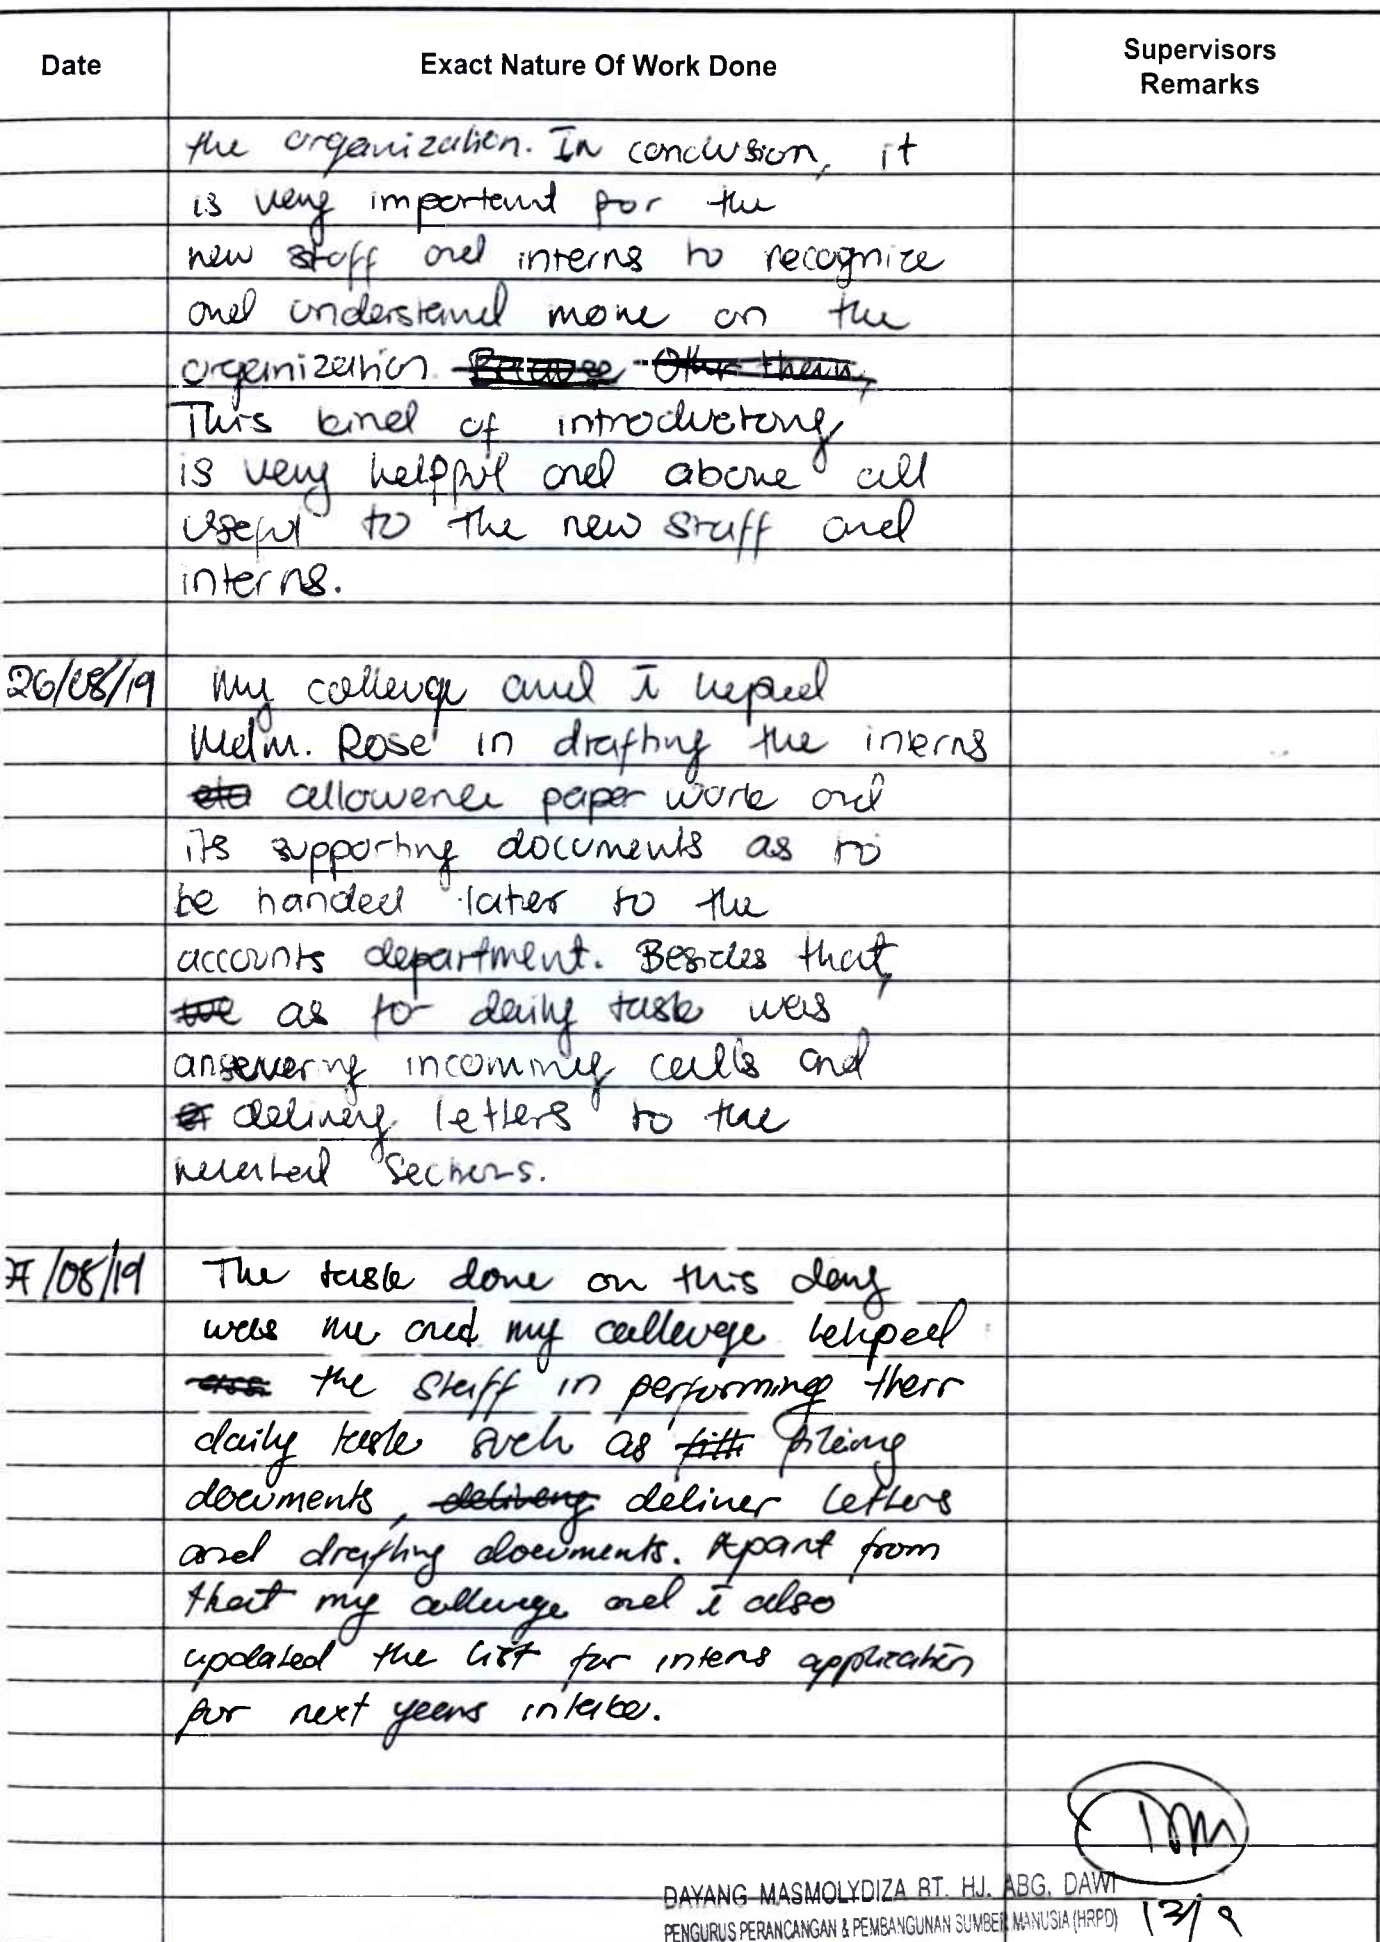 Date Exact Nature Of Work Done Supervisors Remarks
the organization. In conclusion, it
is very important for the
new staff and interns to recognize
and understand more on the
organization ~~Because~~ ~~Other than,~~
This kind of introductory
is very helpful and above all
useful to the new staff and
interns.
26/08/19 My colleuge and i helped
Mdm. Rose in drafting the interns
allowence paper work and
its supporting documents as to
be handed later to the
accounts department. Besides that,
~~the~~ as for daily task was
answering incomming calls and
delivery letters to the
related sectors.
27/08/19 The task done on this day
was me and my colleuge helped
the staff in performing their
daily task such as filing
documents, ~~delivery~~ deliver letters
and drafting documents. Apart from
that my colleuge and i also
updated the list for interns application
for next years intake.
DAYANG MASMOLYDIZA BT. HJ. ABG. DAWI
PENGURUS PERANCANGAN & PEMBANGUNAN SUMBER MANUSIA (HRPD)